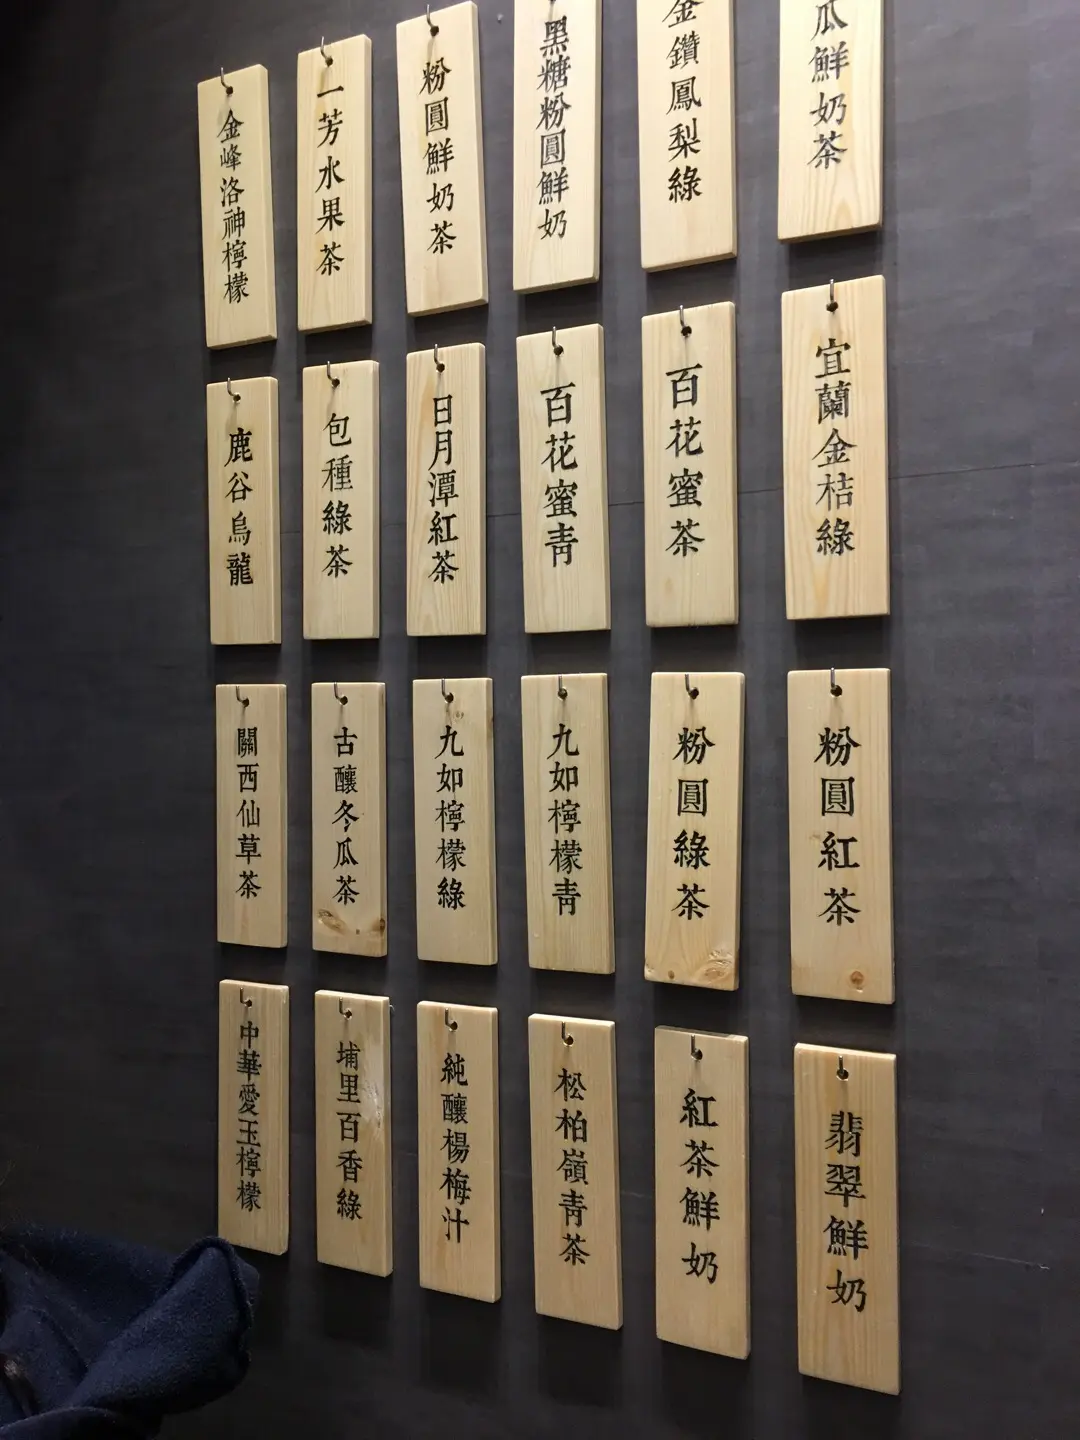 金峰洛神檸檬
一芳水果茶
粉圓鮮奶茶
黑糖粉圓鮮奶
金鑽鳳梨綠
瓜鮮奶茶
鹿谷烏龍
包種綠茶
日月潭紅茶
百花蜜青
百花蜜茶
宜蘭金桔綠
關西仙草茶
古釀冬瓜茶
九如檸檬綠
九如檸檬青
粉圓綠茶
粉圓紅茶
中華愛玉檸檬
埔里百香綠
純釀楊梅汁
松柏嶺青茶
紅茶鮮奶
翡翠鮮奶